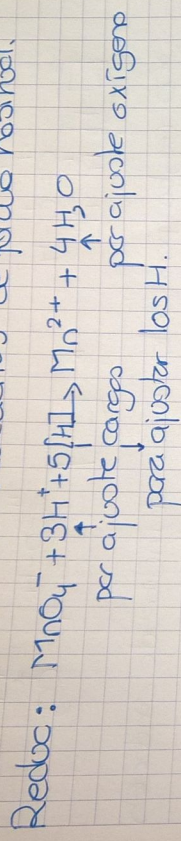 Redoc: MnO₄⁻ + 3H⁺ + 5[H] → Mn²⁺ + 4H₂O
por ajuste cargas por ajuste oxígeno
para ajustar los H.